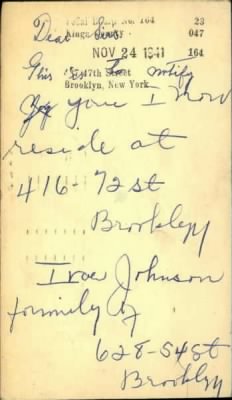 Local Board No. 164 23
Kings County 047
Dear Sir
NOV 24 1941 164
This is to notify
47th Street
Brooklyn, New York
you I now
reside at
416-72 st
Brooklyn
Ivar Johnson
formily of
628-54 st
Brooklyn